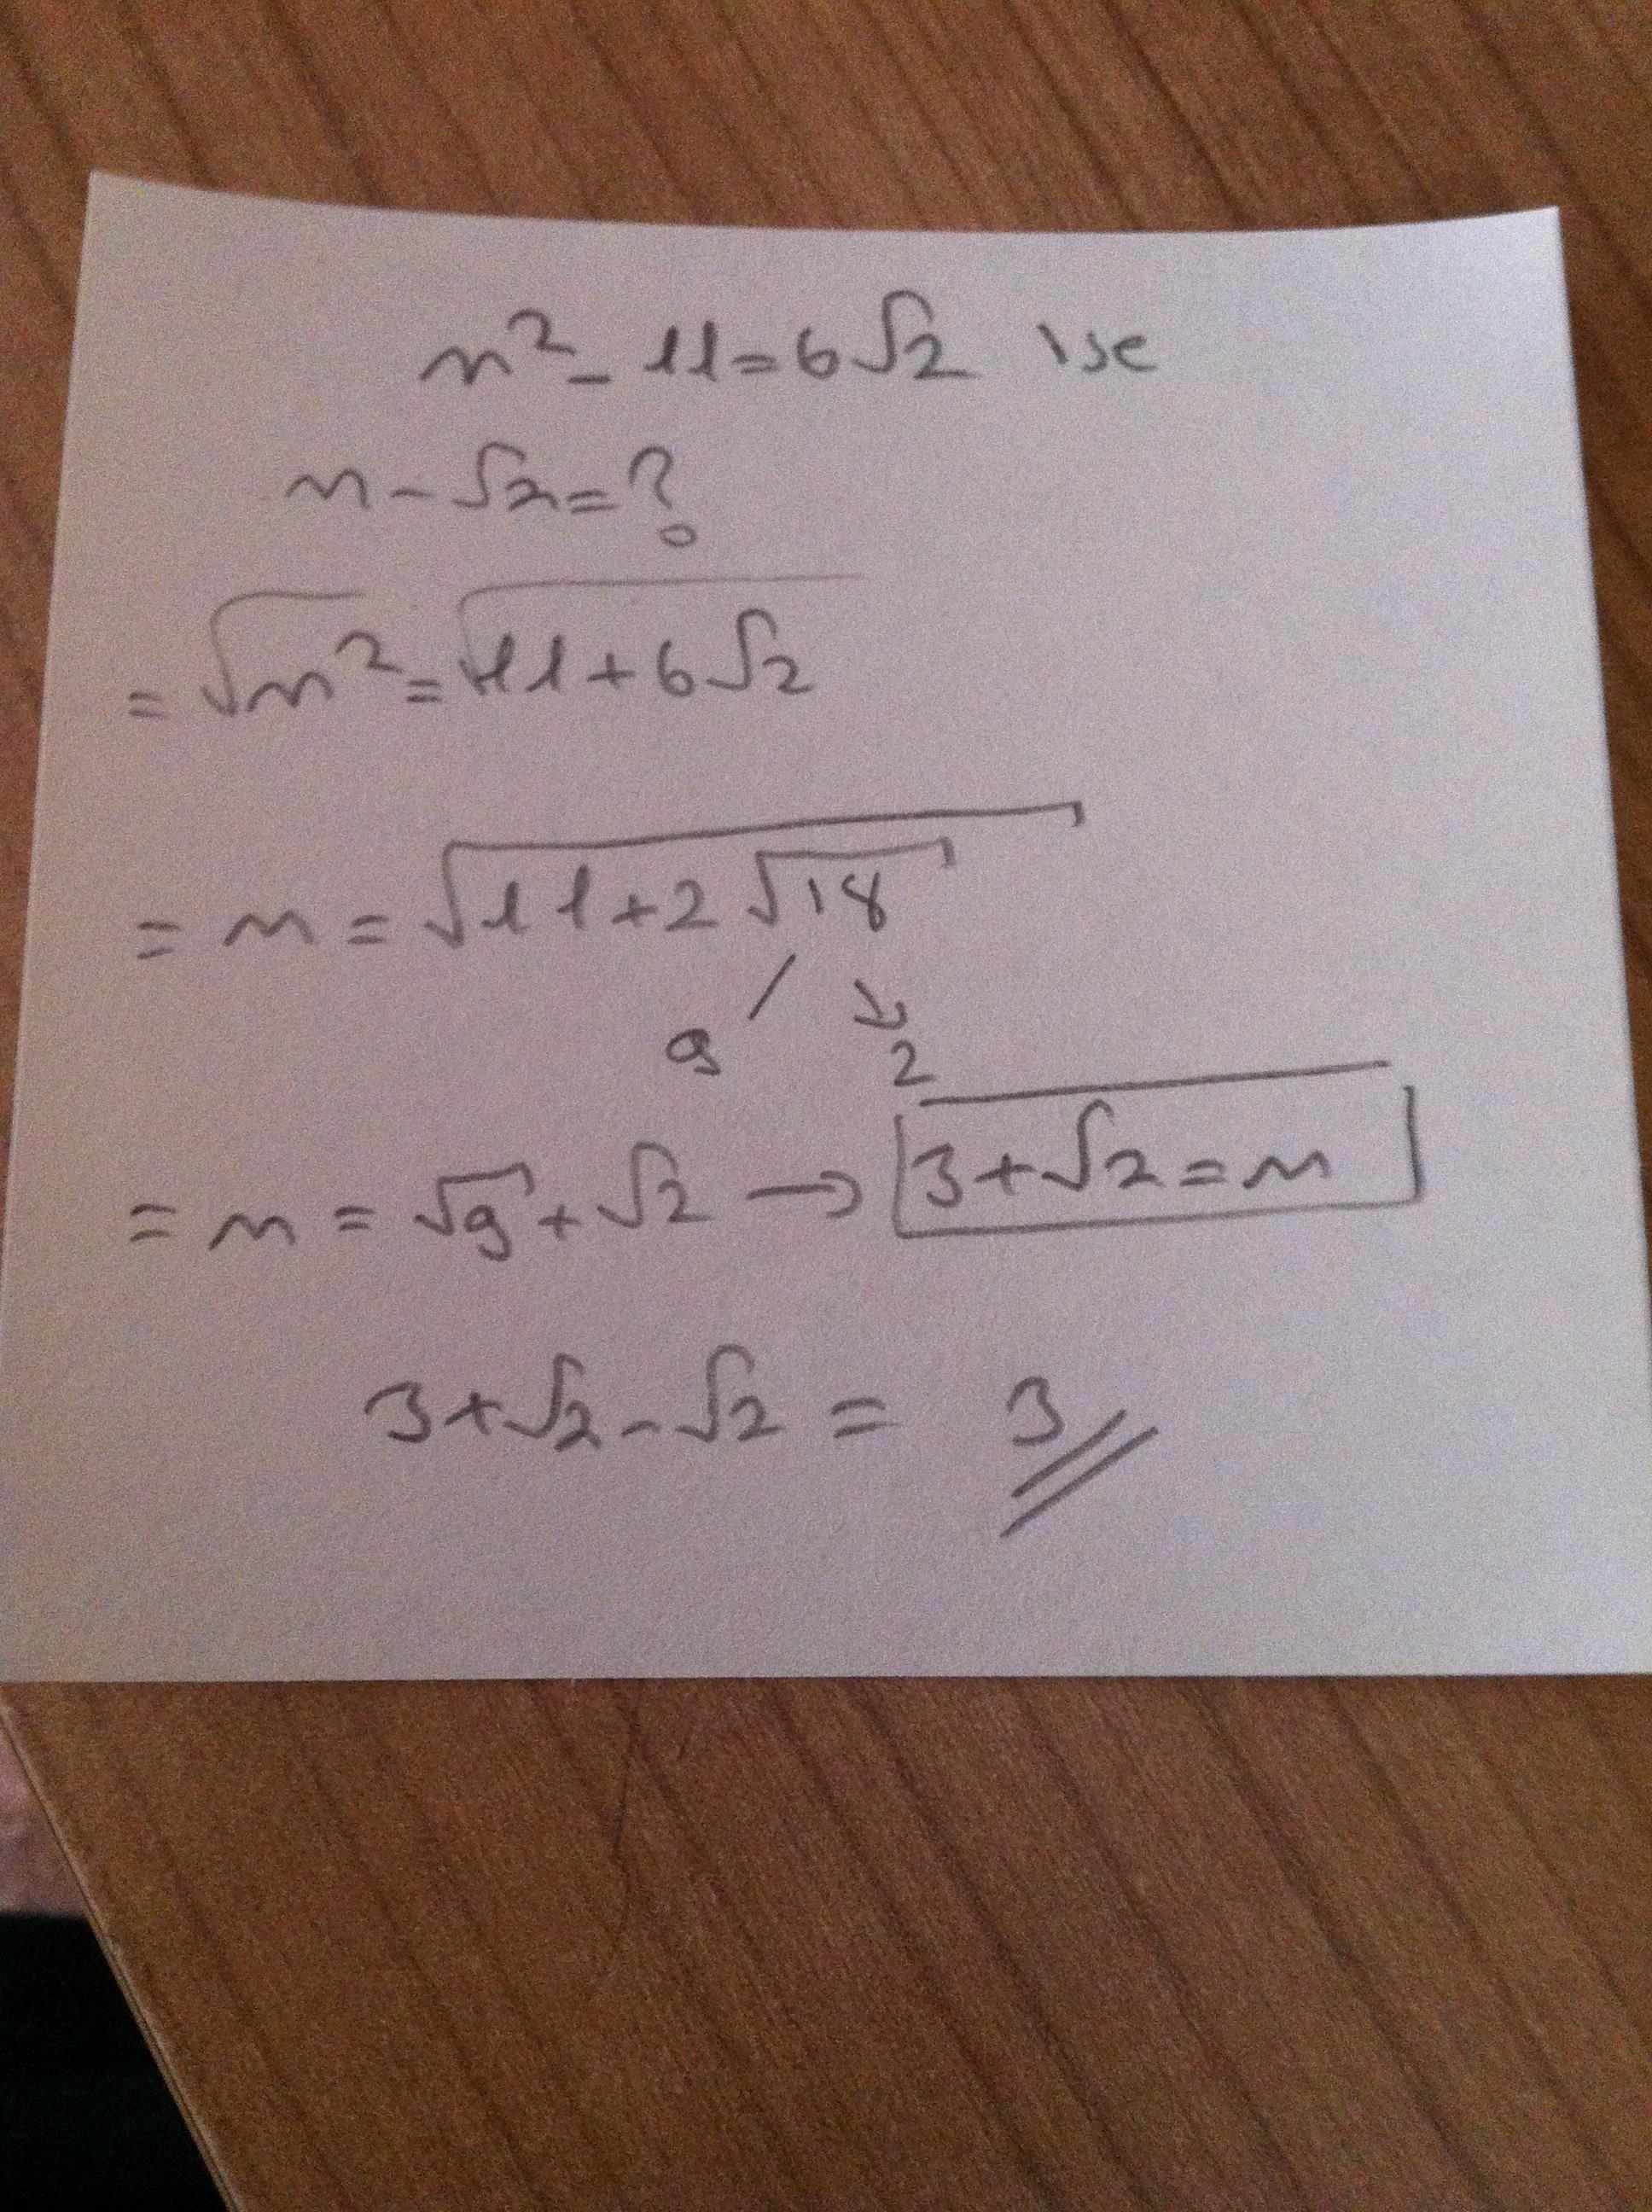 m² - 11 = 6√2 ise
m - √2 = ?
= √m² = √11+6√2
= m = √11+2√18
9 2
= m = √9 + √2 → 3+√2 = m
3+√2-√2 = 3